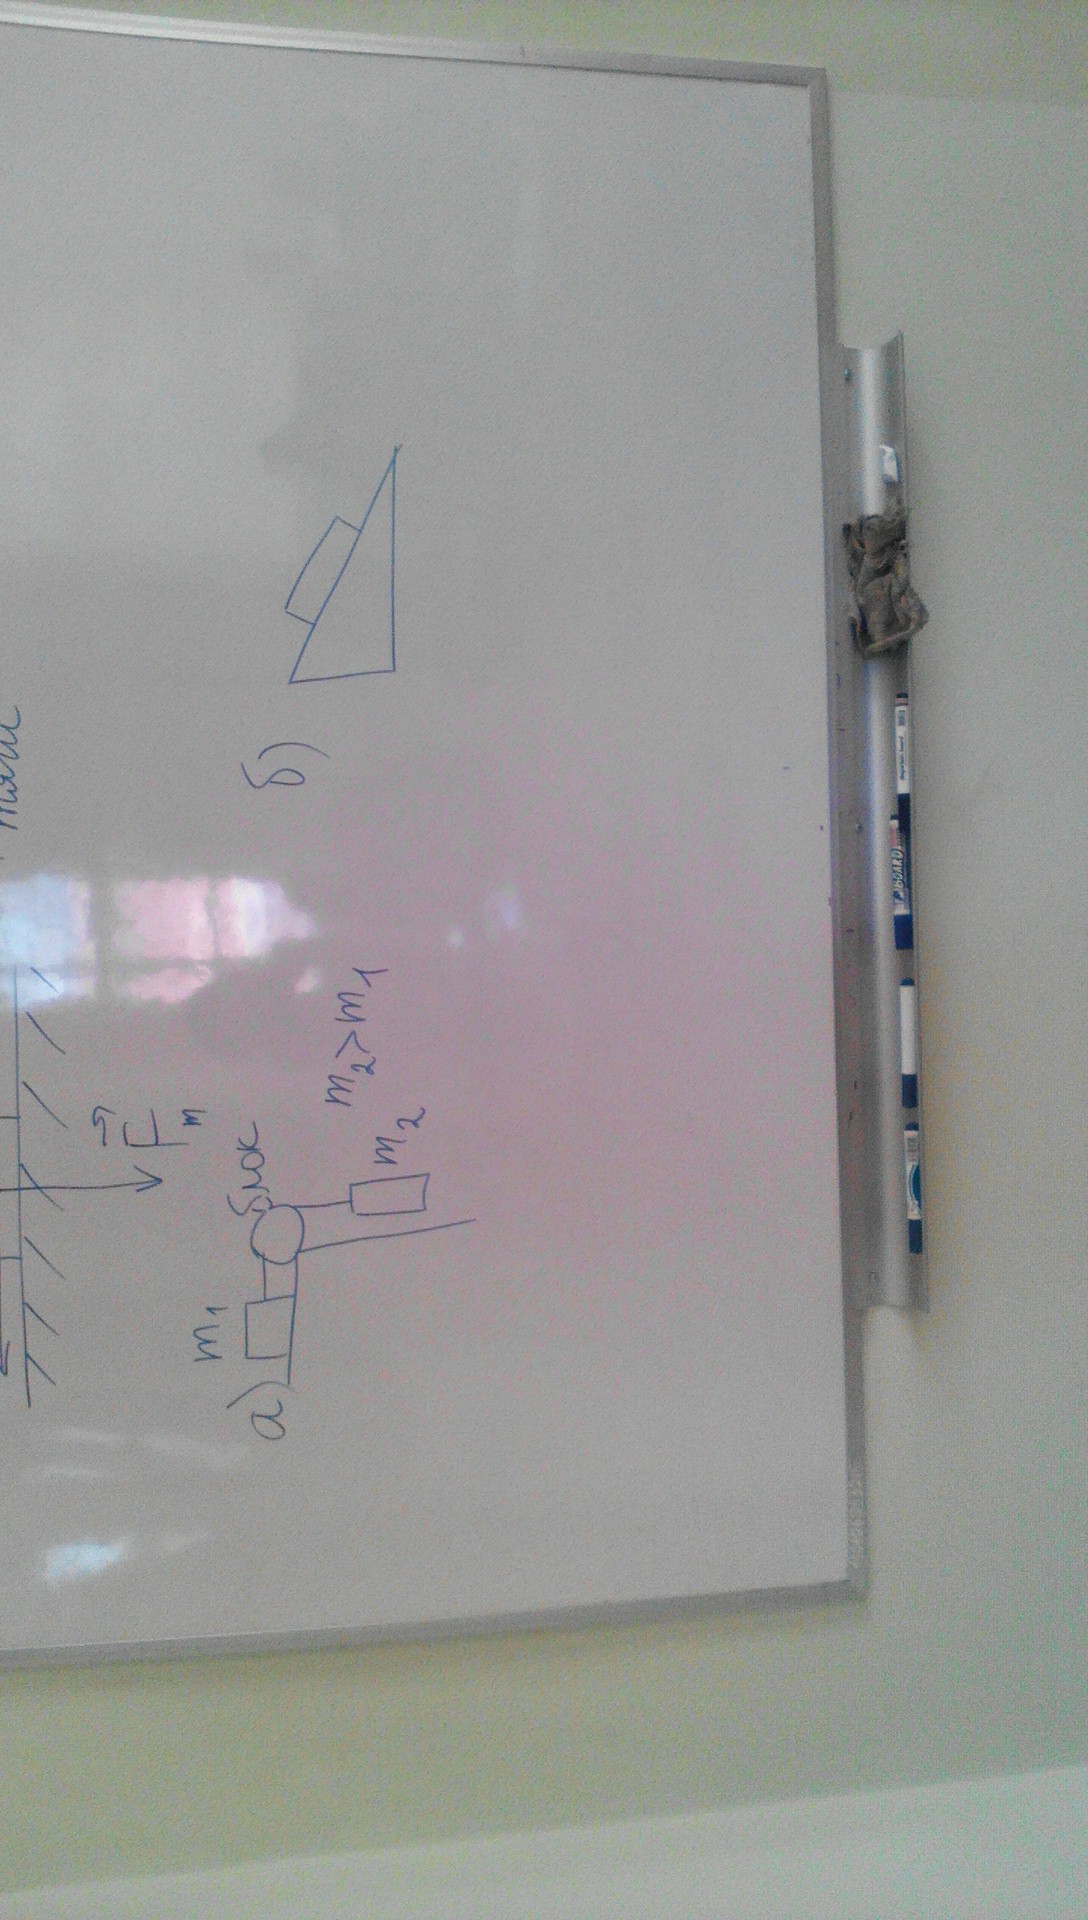 F⃗
m
а) m₁ блок m₂
m₂>m₁
б)
BOARD